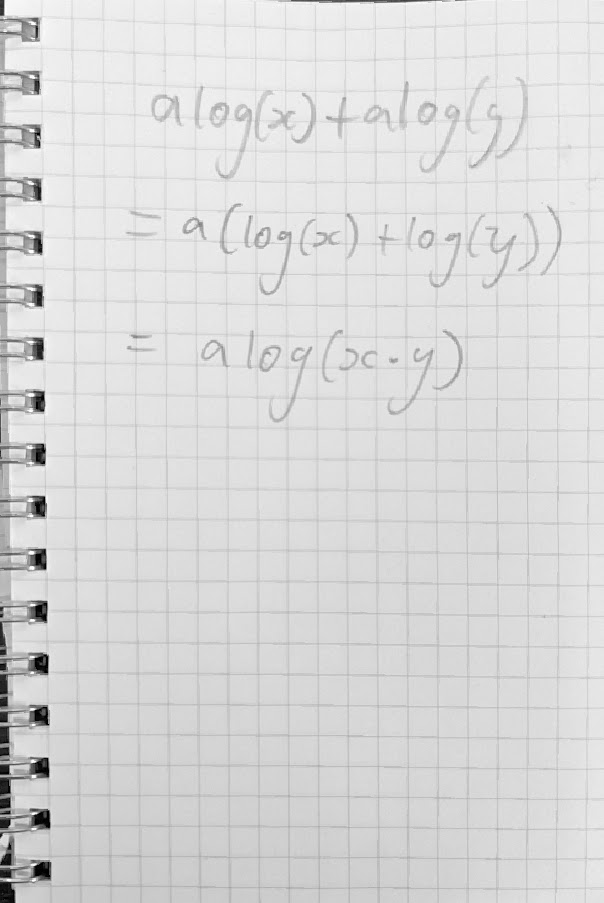 alog(x)+alog(y)
= a(log(x)+log(y))
= alog(x·y)